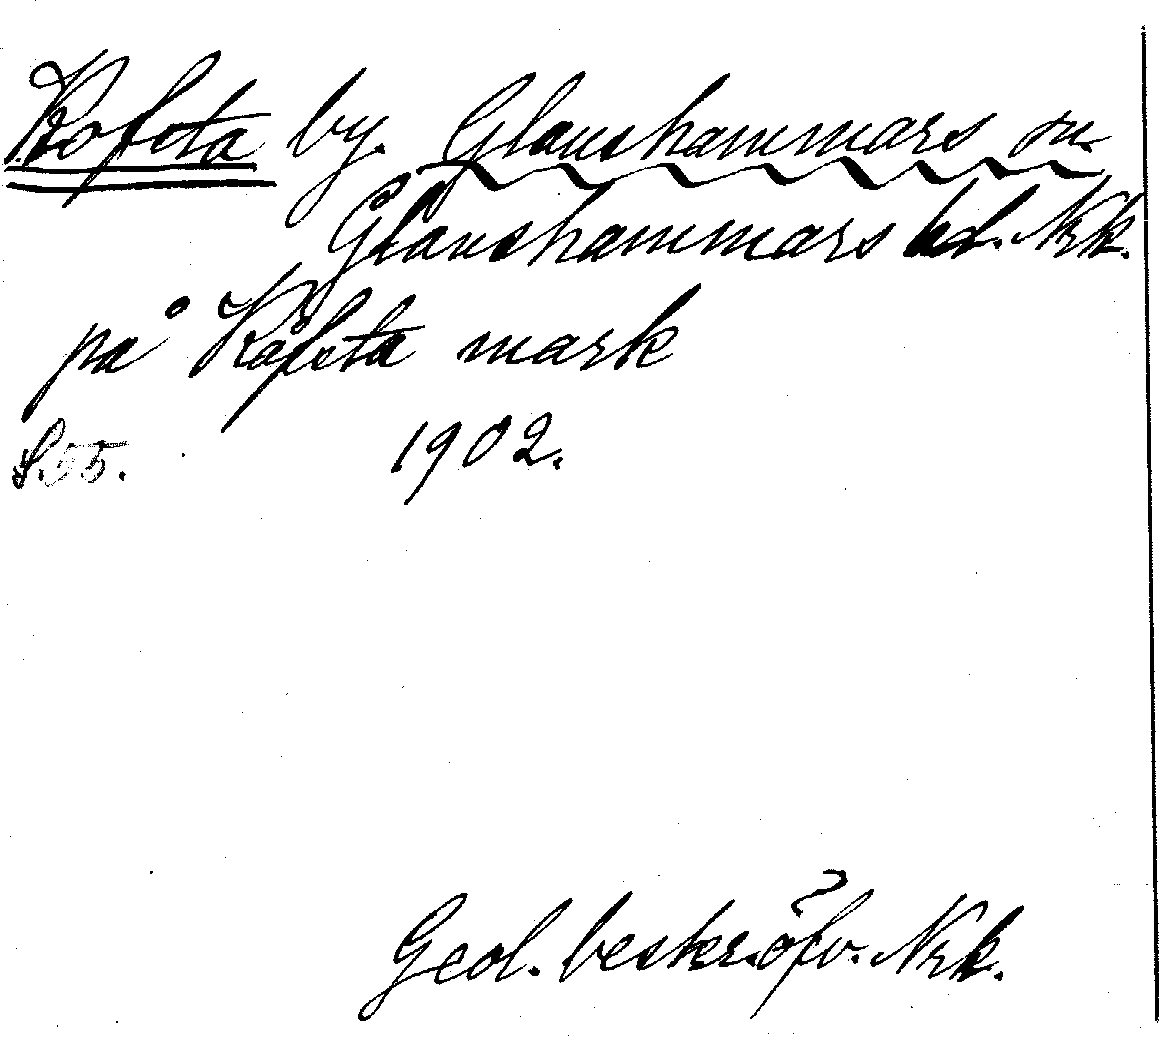 Kofsta by. Glanshammars sn.
Glanshammars hd. Nrk.
på Kåfsta mark
S. 55. 1902.
Geol. beskr. öfv. Nrk.